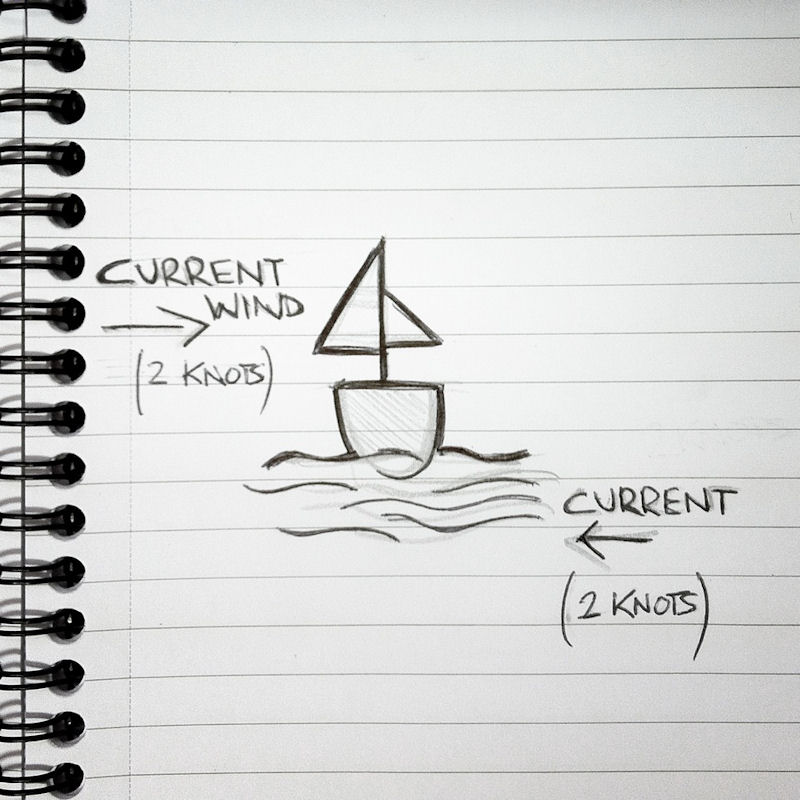 CURRENT
WIND
(2 KNOTS)
CURRENT
(2 KNOTS)